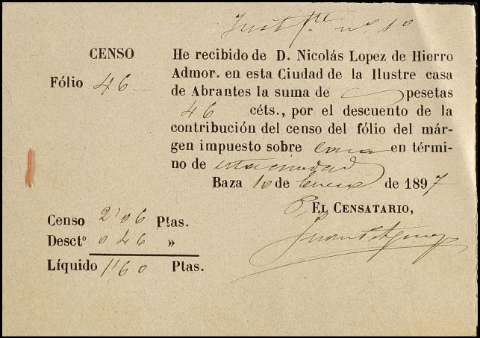 Just.te nº 10
CENSO
Fólio 46
He recibido de D. Nicolás Lopez de Hierro
Admor. en esta Ciudad de la Ilustre casa
de Abrantes la suma de pesetas
46 céts., por el descuento de la
contribución del censo del fólio del már-
gen impuesto sobre casa en térmi-
no de esta ciudad
Baza 10 de enero de 1897
EL CENSATARIO,
Censo 2'06 Ptas.
Desctº 0 46 »
Líquido 1'60 Ptas.